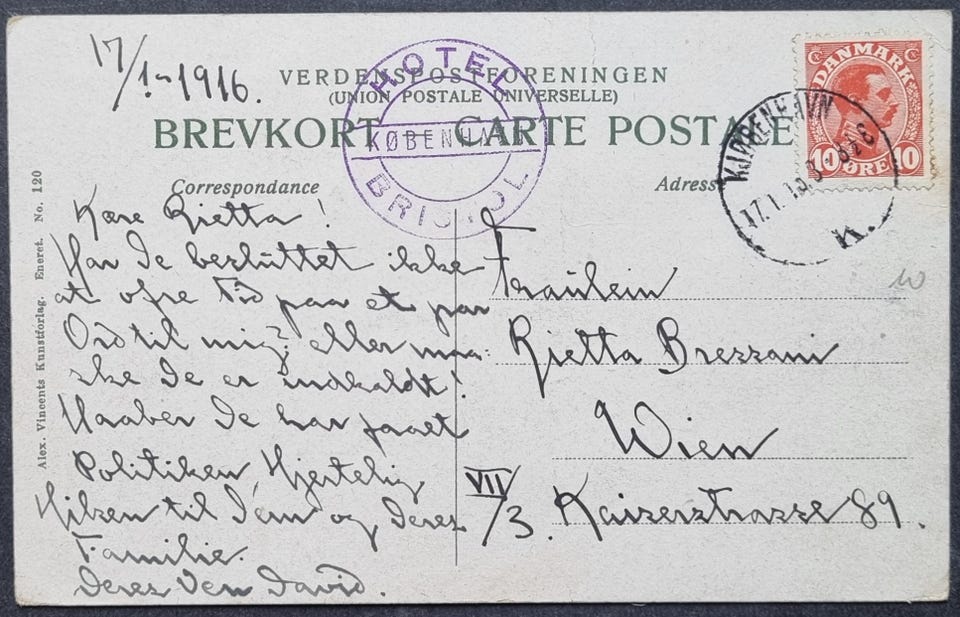 17/1-1916.
VERDENSPOSTFORENINGEN
(UNION POSTALE UNIVERSELLE)
BREVKORT CARTE POSTALE
HOTEL
KØBENHAVN
BRISTOL
DANMARK
10 ØRE 10
KJØBENHAVN
17.1.16.
K.
Correspondance
Adresse
Kære Rietta!
Har De besluttet ikke
at ofre Tid paa et par
Ord til mig? eller maa-
ske De er indkaldt!
Haaber De har faaet
Politiken, Hjertelig
Hilsen til Dem og Deres
Familie.
Deres Ven David.
Fraülein
Rietta Bressani
Wien
VII/3. Kaiserstrasse 89.
10
Alex. Vincents Kunstforlag. Eneret. No. 120